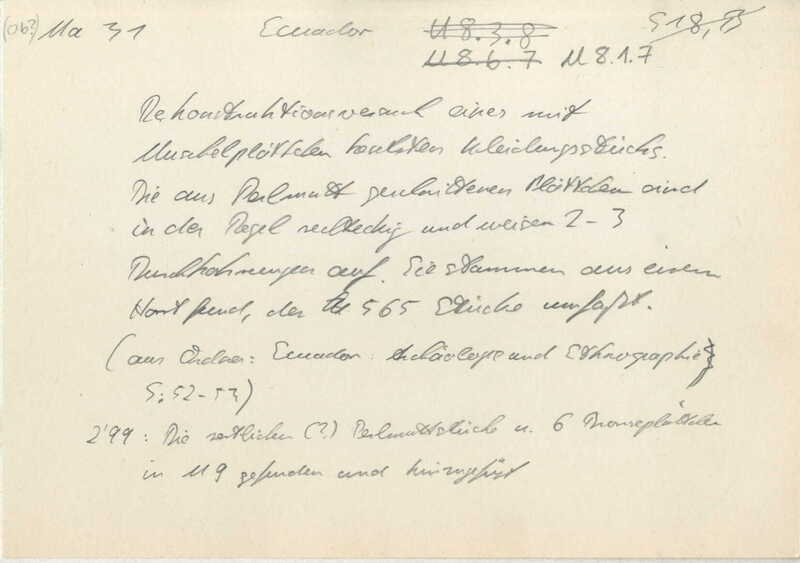 (ob?) Ma 31 Ecuador M 8.3.8 S 18,95
M 8.6.7 M 8.1.7
Rekonstruktionsversuch eines mit
Muschelplättchen besetzten Kleidungsstücks.
Die aus Perlmutt geschnittenen Blättchen sind
in der Regel rechteckig und weisen 2-3
Durchbohrungen auf. Sie stammen aus einem
Hortfund, der 565 Stücke umfaßt.
(aus Ordner: Ecuador: Archäologie und Ethnographie
S: 52-53)
2'99: Die restlichen (?) Perlmuttstücke u. 6 Bronzeplättchen
in M9 gefunden und hinzugefügt